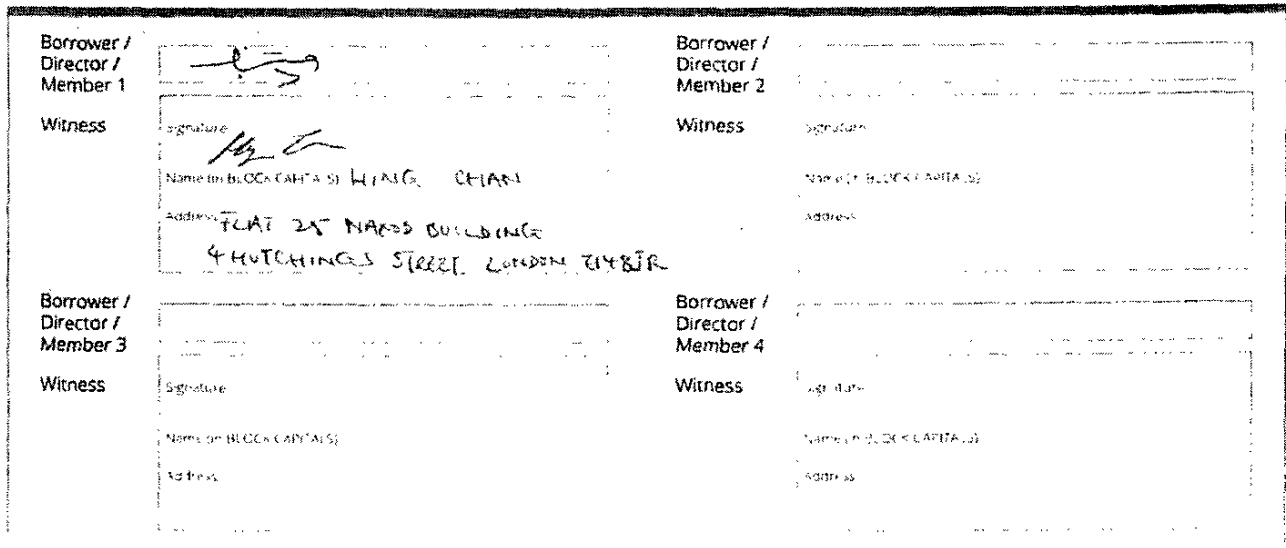 Borrower /
Director /
Member 1
Witness
Signature
Name (in BLOCK CAPITALS) WING CHAN
Address FLAT 25 NAXOS BUILDING
4 HUTCHINGS STREET LONDON E14 8JR
Borrower /
Director /
Member 2
Witness
Signature
Name (in BLOCK CAPITALS)
Address
Borrower /
Director /
Member 3
Witness
Signature
Name (in BLOCK CAPITALS)
Address
Borrower /
Director /
Member 4
Witness
Signature
Name (in BLOCK CAPITALS)
Address